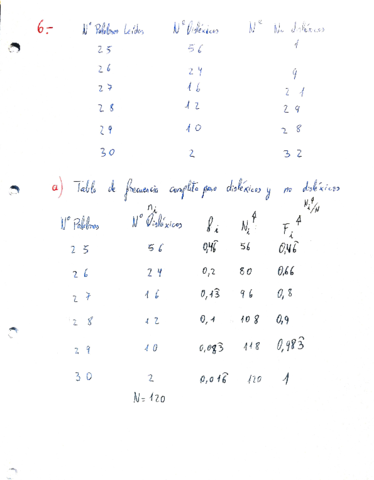 6.- Nº Palabras Leídas Nº Disléxicos Nº No Disléxicos
25 56 1
26 24 9
27 16 21
28 12 29
29 10 28
30 2 32
a) Tabla de frecuencia completa para disléxicos y no disléxicos
Nº Palabras nᵢ Nº Disléxicos fᵢ Nᵢ↑ Fᵢ↑ Nᵢ↑/N
25 56 0,46 56 0,46
26 24 0,2 80 0,66
27 16 0,13 96 0,8
28 12 0,1 108 0,9
29 10 0,083 118 0,983
30 2 0,016 120 1
N=120